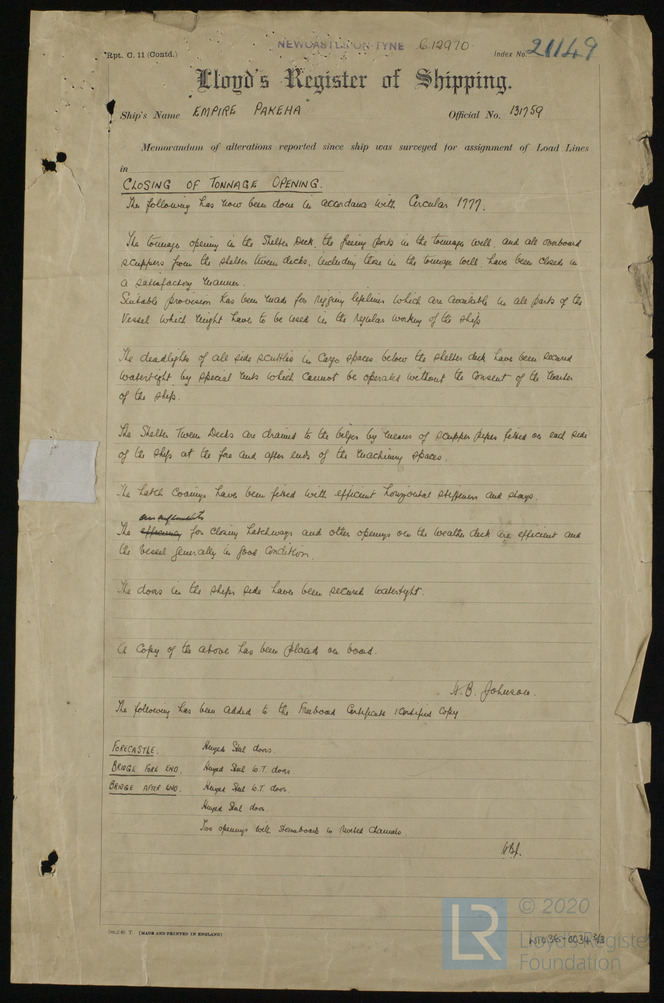 NEWCASTLE-ON-TYNE C.12970
Rpt. C. 11 (Contd.) Index No. 21149
Lloyd's Register of Shipping.
Ship's Name EMPIRE PAKEHA Official No. 131759
Memorandum of alterations reported since ship was surveyed for assignment of Load Lines
in
CLOSING OF TONNAGE OPENING.
The following has now been done in accordance with Circular 1777.
The tonnage opening in the Shelter Deck, the freeing ports in the tonnage well, and all overboard
scuppers from the shelter tween decks, including those in the tonnage well have been closed in
a satisfactory manner.
Suitable provision has been made for rigging lifelines which are available in all parts of the
Vessel which might have to be used in the regular working of the ship
The deadlights of all side scuttles in Cargo spaces below the shelter deck have been secured
watertight by special nuts which cannot be operated without the consent of the Master
of the ship.
The Shelter Tween Decks are drained to the bilges by means of scupper pipes fitted on each side
of the ship at the fore and after ends of the machinery spaces.
The hatch coamings have been fitted with efficient horizontal stiffeners and stays.
arrangements
The efficiency for closing hatchways and other openings on the weather deck are efficient and
the vessel generally in good condition.
The doors in the ships side have been secured watertight.
A Copy of the above has been placed on board.
H. B. Johnson.
The following has been added to the Freeboard Certificate & Certified Copy
FORECASTLE. Hinged Steel doors.
BRIDGE FORE END. Hinged Steel W.T. doors
BRIDGE AFTER END. Hinged Steel W.T. doors.
Hinged Steel door.
Two openings with Stormboards in riveted channels.
HBJ.
T. (MADE AND PRINTED IN ENGLAND)
© 2020
LR Lloyd's Register
Foundation